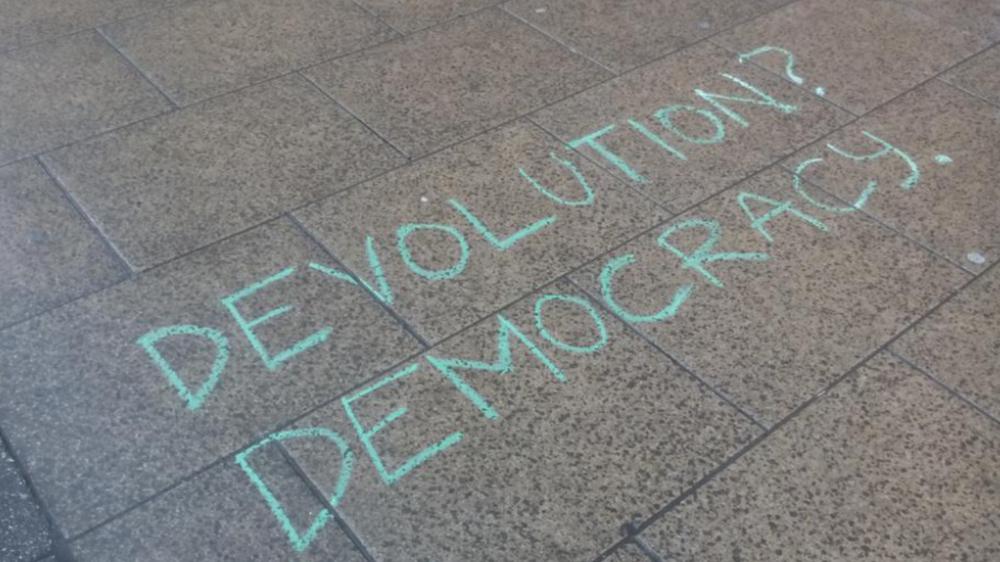 DEVOLUTION?
DEMOCRACY.